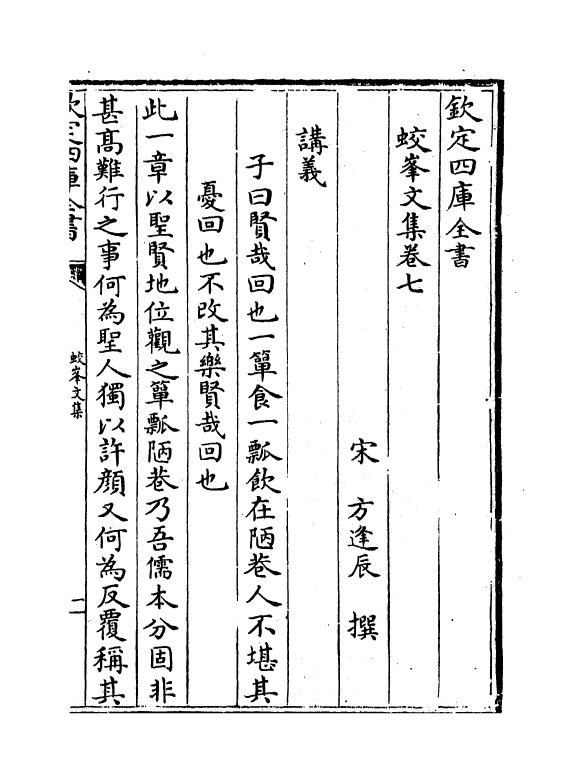 欽定四庫全書
蛟峯文集卷七
宋 方逢辰 撰
講義
子曰賢哉回也一簞食一瓢飲在陋巷人不堪其
憂回也不改其樂賢哉回也
此一章以聖賢地位觀之簞瓢陋巷乃吾儒本分固非
甚髙難行之事何為聖人獨以許顔又何為反覆稱其
欽定四庫全書
蛟峯文集
一